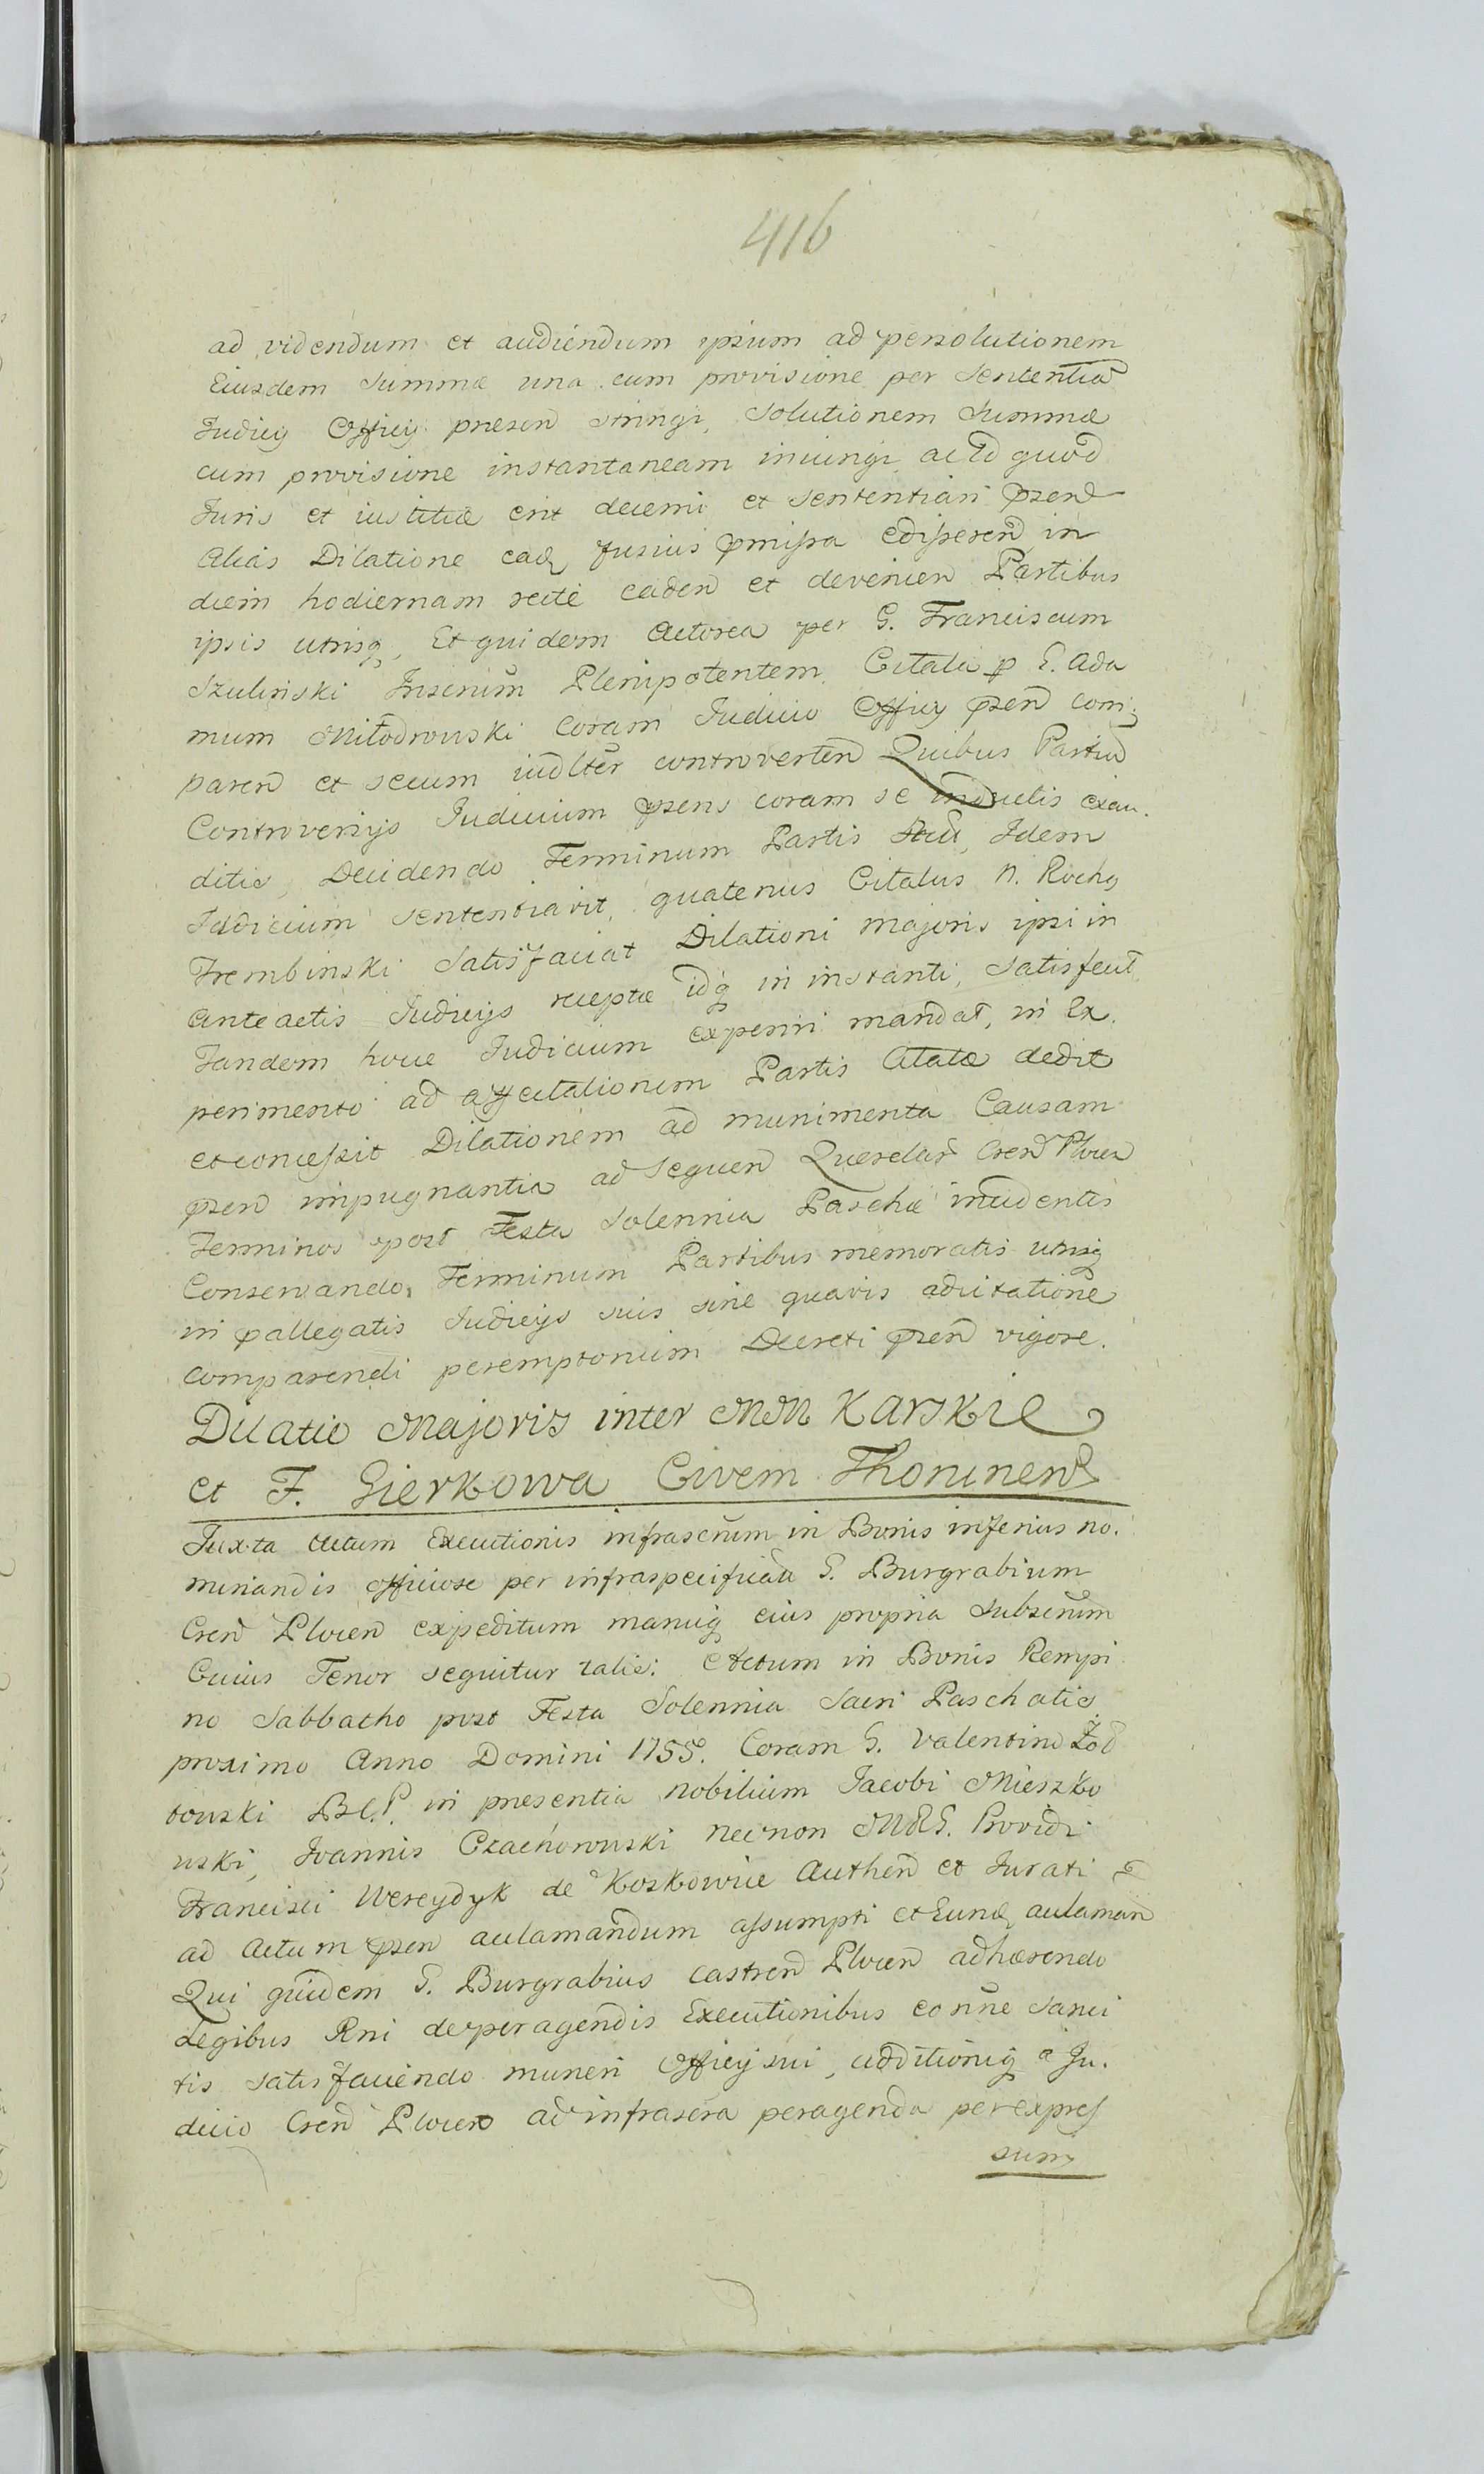 416
ad videndum et audiendum ipsum ad persolutionem
Eiusdem Summæ una cum provisione per Sententiã
Judicÿ Officÿ præsen͠ stringi, Solutionem Summæ
cum provisione instantaneam iniungi, ac Id quod
Juris et iustitiæ erit decerni et sententiari pꝛsen͠
alias Dilatione eaq fusius pmissa edisseren͠ in
diem hodiernam recte caden͠ et devenien͠ Partibus
ipsis utrisq, Et quidem Actorea per G. Franciscum
Szulinski Inscrum͠ Plenipotentem, Citata p G. Ada
mum Miłodrowski Coram Judicio Officÿ pꝛsen͠ com:
paren͠ et secum iudlter controverten͠ Quibus Partiu͠
Controversÿs Judicium pꝛsens coram se inductis exau.
ditis, Decidendo Terminum Partis Idem
Judicium sententiavit, quatenus Citatus N. Rochq
Trembinski Satisfaciat Dilationi majoris ipsi in
anteactis Judicÿs receptæ idq in instanti, Satisfecit
Tandem hocce Judicium experiri mandat, in Ex.
perimento ad affectationem Partis Citatæ dedit
et concessit Dilationem ad munimenta Causam
pꝛsen͠ impugnantia ad Sequen͠ Querelar͠ Cren͠ Plocen͠
Terminos post Festa Solennia Paschæ incidentis
Conservando, Terminum Partibus memoratis utrisq
in pallegatis Judicÿs suis sine quavis adcitatione
comparendi peremptorium Decreti pꝛsen͠ vigore.
Dilatio Majoris inter MM Karskie
et F. Gierkowa Civem Thorunen͠
Juxta Actum Executionis infrascrum͠ in Bonis inferius no.
minandis officiose per infraspecificatu͠ G. Burgrabium
Cren͠ Plocen͠ expeditum manuq eius propria Subscrum͠
Cuius Tenor sequitur talis: Actum in Bonis Rempi
no Sabbatho post Festa Solennia Sacri Paschatis
proximo Anno Domini 1755. Coram G. Valentino Zoł
towski B.C.P. in præsentia nobilium Jacobi Mieszko
wski, Joannis Czachorowski necnon Providi
Francisci Wereydyk de Koskowie Authen͠ et Jurati
ad Actum pꝛsen͠ acclamandum assumpti et Eunq aclaman͠
Qui quidem G. Burgrabius castren͠ Plocen͠ adhærendo
Legibus Rni de peragendis Executionibus eo nñe sanci
tis satisfaciendo muneri Officÿ sui, additioniq a Ju.
dicio Cren͠ Plocen͠ ad infrascra peragenda per expres
sum